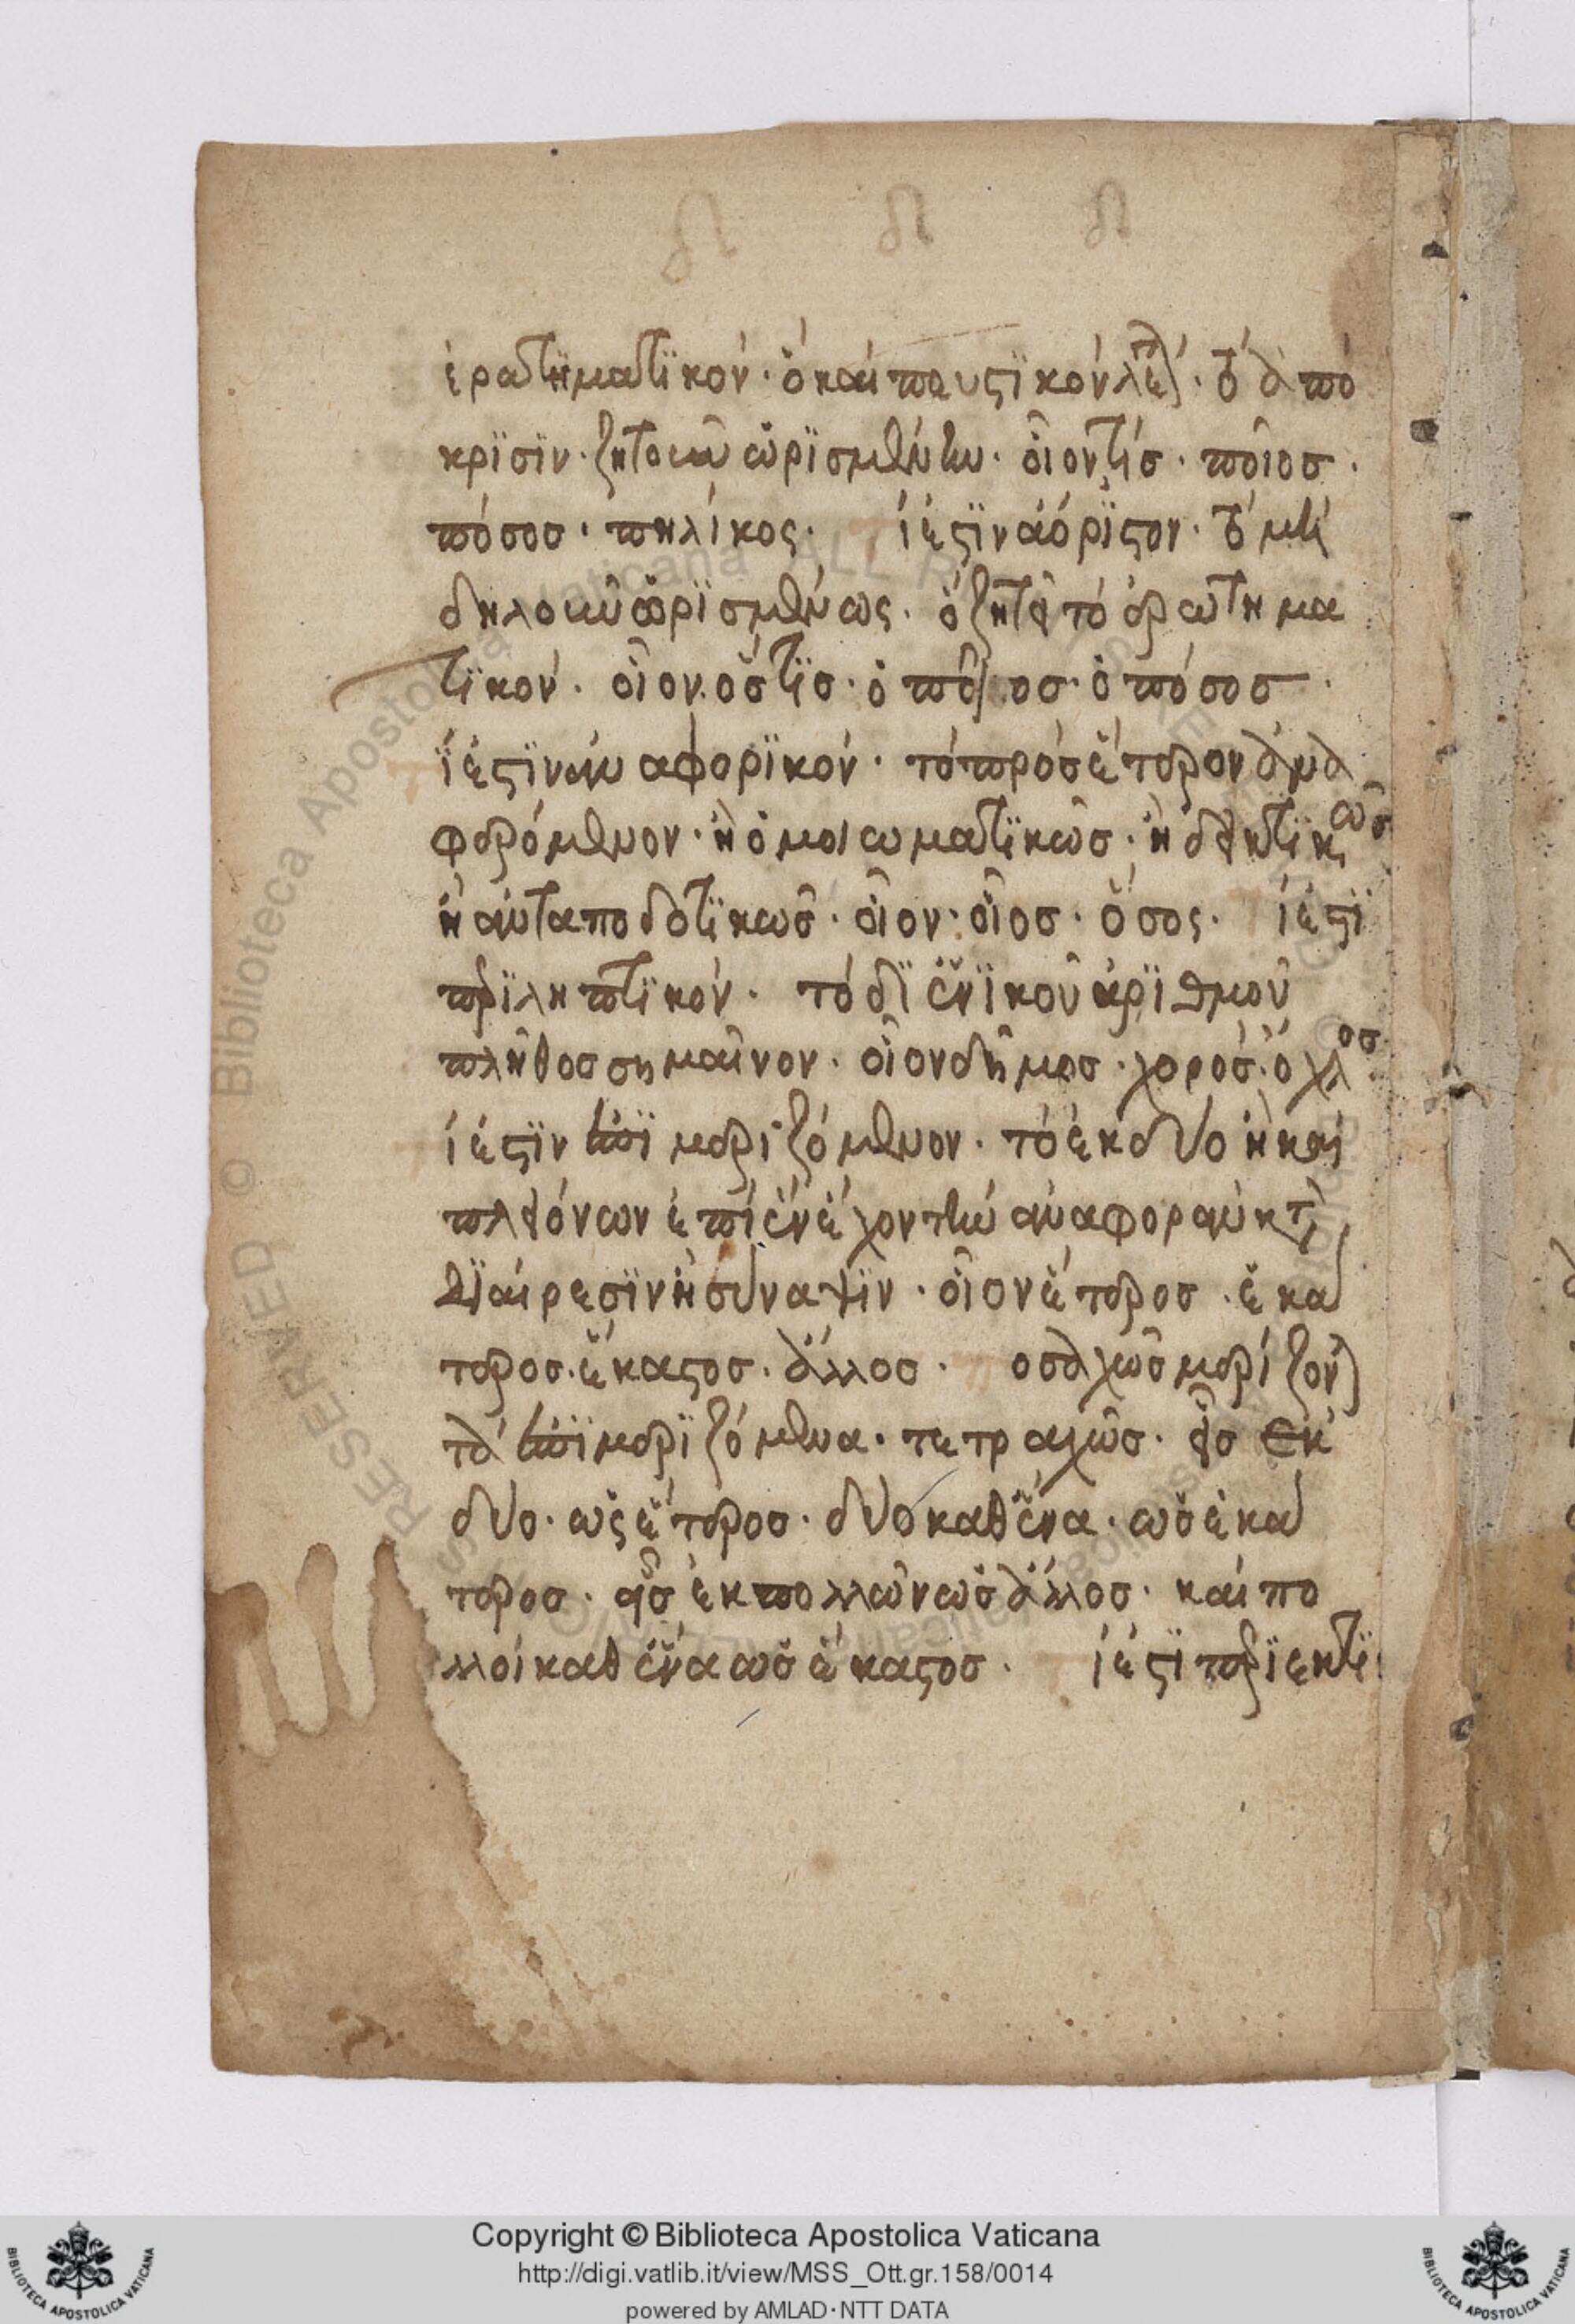 ἐρωτηματικόν· ὃ καὶ πευστικὸν λέγεται· τὸ ἀπό
κρισιν· ζητοῦν ὡρισμένην· οἷον τίς· ποῖος·
πόσος· πηλίκος· ί ἐστιν ἀόριστον· τὸ μὴ
δηλοῦν ὡρισμένως· ὃ ζητεῖ τὸ ἐρωτημα
τικόν· οἷον ὅστις· ὁποῖος· ὁπόσος·
ί ἐστιν ἀναφορικόν· τὸ πρὸς ἕτερον ἀνα
φερόμενον· ἢ ὁμοιωματικῶς· ἢ δεικτικῶς
ἢ ἀνταποδοτικῶς· οἷον· οἷος· ὅσος· ί ἐστι
περιληπτικόν· τὸ δι ἑνικοῦ ἀριθμοῦ
πλῆθος σημαῖνον· οἷον δῆμος· χορός· ὄχλος·
ί ἐστιν ἐπιμεριζόμενον· τὸ ἐκ δύο ἢ καὶ
πλειόνων ἐπὶ ἓν ἔχον τὴν ἀναφορὰν κατὰ
διαίρεσιν ἢ σύναψιν· οἷον ἕτερος· ἑκά
τερος· ἕκαστος· ἄλλος· οσαχῶς μερίζον
τὰ ἐπιμεριζόμενα· τετραχῶς· εἷς ἐκ
δύο· ὡς ἕτερος· δύο καθ ἕνα· ὡς ἑκά
τερος· εἷς ἐκ πολλῶν ὡς ἄλλος· καὶ πο
λλοὶ καθ ἕνα ὡς ἕκαστος· ί ἐστι περιεκτι
Copyright © Biblioteca Apostolica Vaticana
http://digi.vatlib.it/view/MSS_Ott.gr.158/0014
powered by AMLAD·NTT DATA